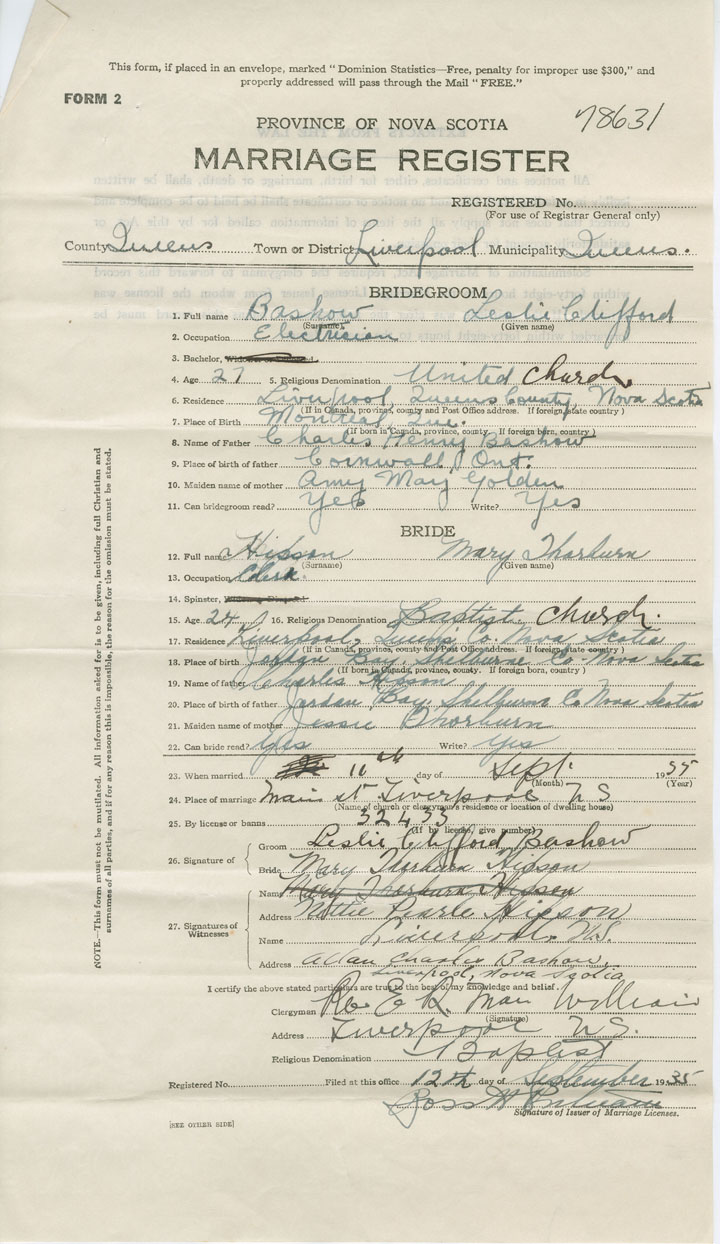 This form, if placed in an envelope, marked "Dominion Statistics—Free, penalty for improper use $300," and
properly addressed will pass through the Mail "FREE."
FORM 2
78631
PROVINCE OF NOVA SCOTIA
MARRIAGE REGISTER
REGISTERED No.
(For use of Registrar General only)
County Queens Town or District Liverpool Municipality Queens.
BRIDEGROOM
1. Full name Bashow Leslie Clifford
(Surname) (Given name)
2. Occupation Electrician
3. Bachelor,
4. Age 27 5. Religious Denomination United Church
6. Residence Liverpool, Queens County, Nova Scotia
(If in Canada, province, county and Post Office address. If foreign state country)
7. Place of Birth Montreal, Que.
(If born in Canada, province, county. If foreign born, country)
8. Name of Father Charles Henry Bashow
9. Place of birth of father Cornwall, Ont.
10. Maiden name of mother Amy May Golden
11. Can bridegroom read? Yes Write? Yes
BRIDE
12. Full name Hipson Mary Thorburn
(Surname) (Given name)
13. Occupation Clerk.
14. Spinster,
15. Age 24 16. Religious Denomination Baptist Church.
17. Residence Liverpool, Queens Co. Nova Scotia
(If in Canada, province, county and Post Office address. If foreign, state country)
18. Place of birth Jordan Bay, Shelburne Co Nova Scotia
(If born in Canada, province, county. If foreign born, country)
19. Name of father Charles Hipson
20. Place of birth of father Jordan Bay, Shelburne Co Nova Scotia
21. Maiden name of mother Jessie Thorburn
22. Can bride read? Yes Write? Yes
23. When married 11th day of Sept. 1935
(Month) (Year)
24. Place of marriage Main St Liverpool NS
(Name of church or clergyman's residence or location of dwelling house)
25. By license or banns 32433
(If by license, give number)
26. Signature of
Groom Leslie Clifford Bashow
Bride Mary Thorburn Hipson
27. Signatures of Witnesses
Name Mary Thorburn Hipson
Address Nettie Pearle Hipson
Name Liverpool. N.S.
Address Allan Charles Bashow
Liverpool, Nova Scotia
I certify the above stated particulars are true to the best of my knowledge and belief.
Clergyman Rev E R. Mac William
(Signature)
Address Liverpool NS.
Religious Denomination Baptist
Registered No. Filed at this office 12th day of September 1935
Ross H
Signature of Issuer of Marriage Licenses.
[SEE OTHER SIDE]
NOTE.—This form must not be mutilated. All information asked for is to be given, including full Christian and
surnames of all parties, and if for any reason this is impossible, the reason for the omission must be stated.